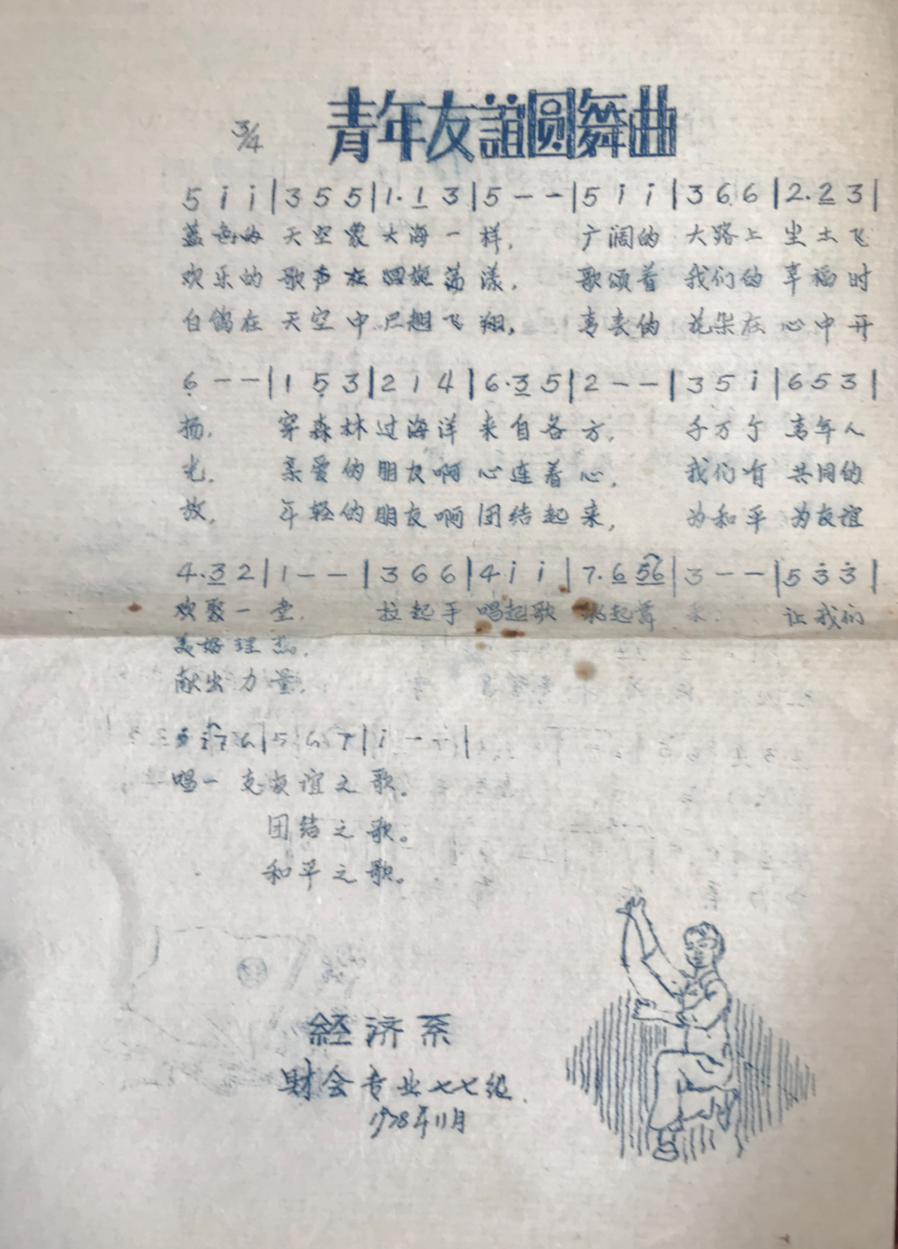 青年友誼圆舞曲
3/4
5 i i | 3 5 5 | 1. 1 3 | 5 - - | 5 i i | 3 6 6 | 2. 2 3 |
蓝色的 天空象 大海一样, 广阔的 大路上 尘土飞
欢乐的 歌声在 四处荡漾, 歌颂着 我们的 幸福时
白鸽在 天空中 飞翔, 青春的 花朵在 心中开
6 - - | 1 5 3 | 2 1 4 | 6. 3 5 | 2 - - | 3 5 i | 6 5 3 |
扬, 穿森林过海洋 来自各方, 千万个 青年人
光, 亲爱的朋友啊 心连着心, 我们有 共同的
放, 年轻的朋友啊 团结起来, 为和平 为友谊
4. 3 2 | 1 - - | 3 6 6 | 4 i i | 7. 6 56 | 3 - - | 5 3 3 |
欢聚一堂. 拉起手 唱起歌 跳起舞 来. 让我们
美好理想.
献出力量.
i 7 6 | 5 6 7 | i - - |
唱一支友谊之歌.
团结之歌。
和平之歌。
経济系
财会专业七七级.
1978年11月